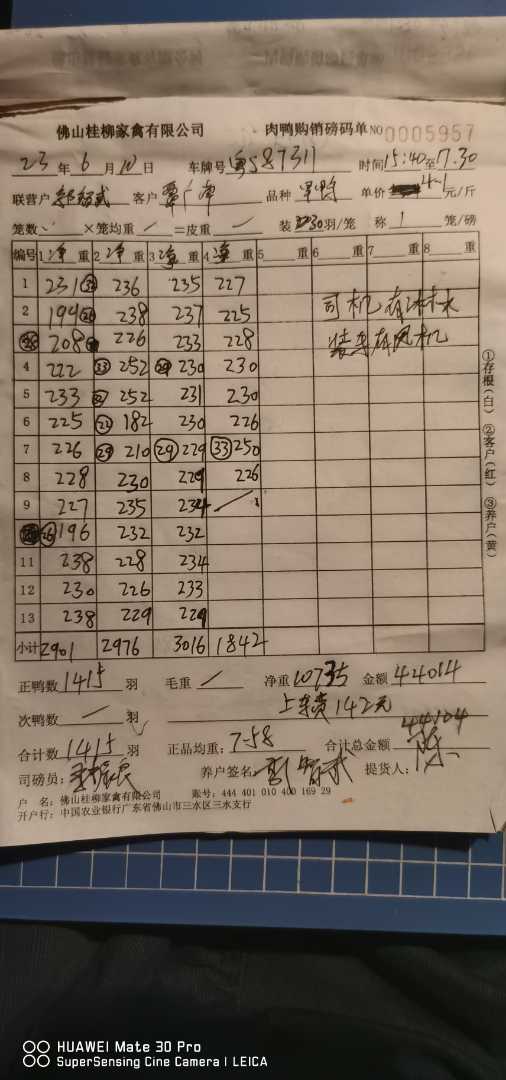 佛山桂柳家禽有限公司 肉鸭购销磅码单 NO 0005957
23 年 6 月 10 日 车牌号 粤S87311 时间 15:40 至 17.30
联营户 客户 品种 单价 4.1 元/斤
笼数 ×笼均重 / =皮重 / 装 30 羽/笼 称 1 笼/磅
编号 1 净 重 2 净 重 3 净 重 4 净 重 5 重 6 重 7 重 8 重
1 231 236 235 227
2 194 238 237 225 司机有淋水
208 226 233 228 装车有风机
4 222 33 252 29 230 230
5 233 252 231 230
6 225 182 230 226
7 226 29 210 29 229 33 250
8 228 230 229 226
9 227 235 234 /
26 196 232 232
11 238 228 234
12 230 226 233
13 238 229 229
小计 2901 2976 3016 1842
①存根(白) ②客户(红) ③养户(黄)
正鸭数 1415 羽 毛重 / 净重 10735 金额 44014
次鸭数 / 羽 上车费 142元
合计数 1415 羽 正品均重: 7.58 合计总金额 44104
司磅员: 养户签名: 提货人: 陈
户 名: 佛山桂柳家禽有限公司 账号: 444 401 010 400 169 29
开户行: 中国农业银行广东省佛山市三水区三水支行
HUAWEI Mate 30 Pro
SuperSensing Cine Camera | LEICA